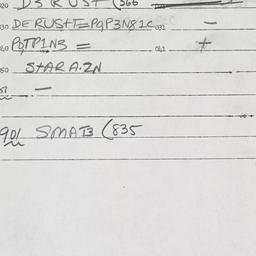 020 D3 RUST (566
030 DERUST=PQP3N81C 031 —
060 PQTP1N3 = 061 +
050 STAR A.ZN
51 —
901 SMAT3 (835